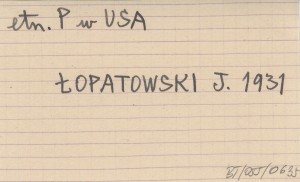 etn. P w USA
ŁOPATOWSKI J. 1931